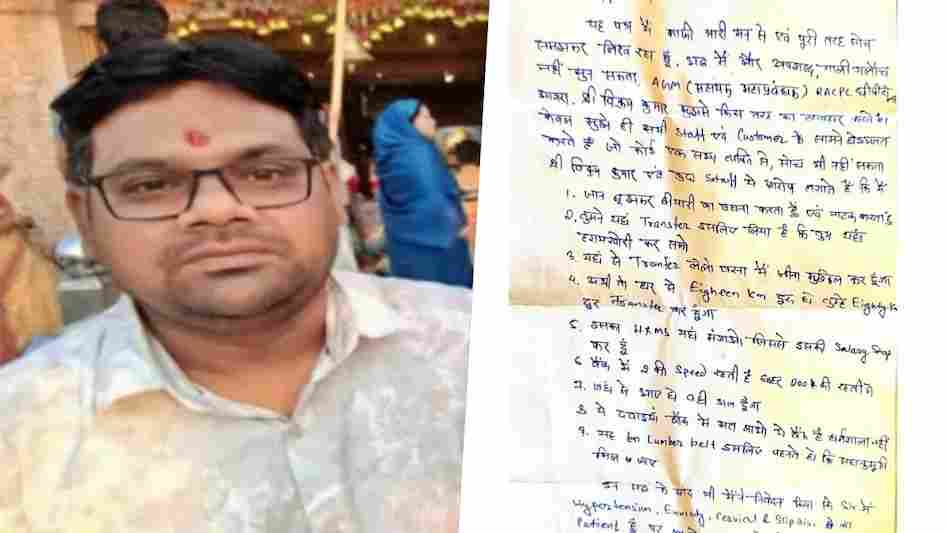 यह पत्र मैं काफी भारी मन से एवं पूरी तरह सोच
समझकर लिख रहा हूँ, अब मैं और अपशब्द, गाली गलौच
नहीं सुन सकता, AGM (सहायक महाप्रबंधक) RACPC
आगरा, श्री विक्रम कुमार मुझसे किस तरह का व्यवहार करते है।
केवल मुझे ही सभी Staff एवं Customer के सामने बेइज्जत
करते है जो कोई एक सभ्य व्यक्ति से, सोच भी नहीं सकता
श्री विक्रम कुमार एवं कुछ Staff ये आरोप लगाते है कि मैं
1. जान बूझकर बीमारी का बहाना करता है एवं नाटक करता है
2. तुमने यहां Transfer इसलिए लिया है कि तुम यहाँ
हरामखोरी कर सको
3. यहां से Transfer लेलो वरना मैं जीना मुश्किल कर दूंगा
4. अभी तो घर से Eigheen km दूर हो तुम्हे Eighty km
दूर Transfer कर दूंगा
5. इसका HRMS यहां मंगाओ, जिससे इसकी Salary Stop
कर दूँ
6 बैंक में 2 की Speed चलती है Saar Desk की
7. यहां से भगा दो नही भगा दूंगा
8 ये दवाइयां बैंक में मत लाओ ये बैंक है धर्मशाला नहीं
9. यह Lumber belt इसलिए पहनते हो कि सहानुभूति
मिल जाए
इन सब के बाद भी मैंने निवेदन किया कि Sir मैं
Hypertension, Exnixty, Cervical & Slipdisc का
Patient हूँ पर